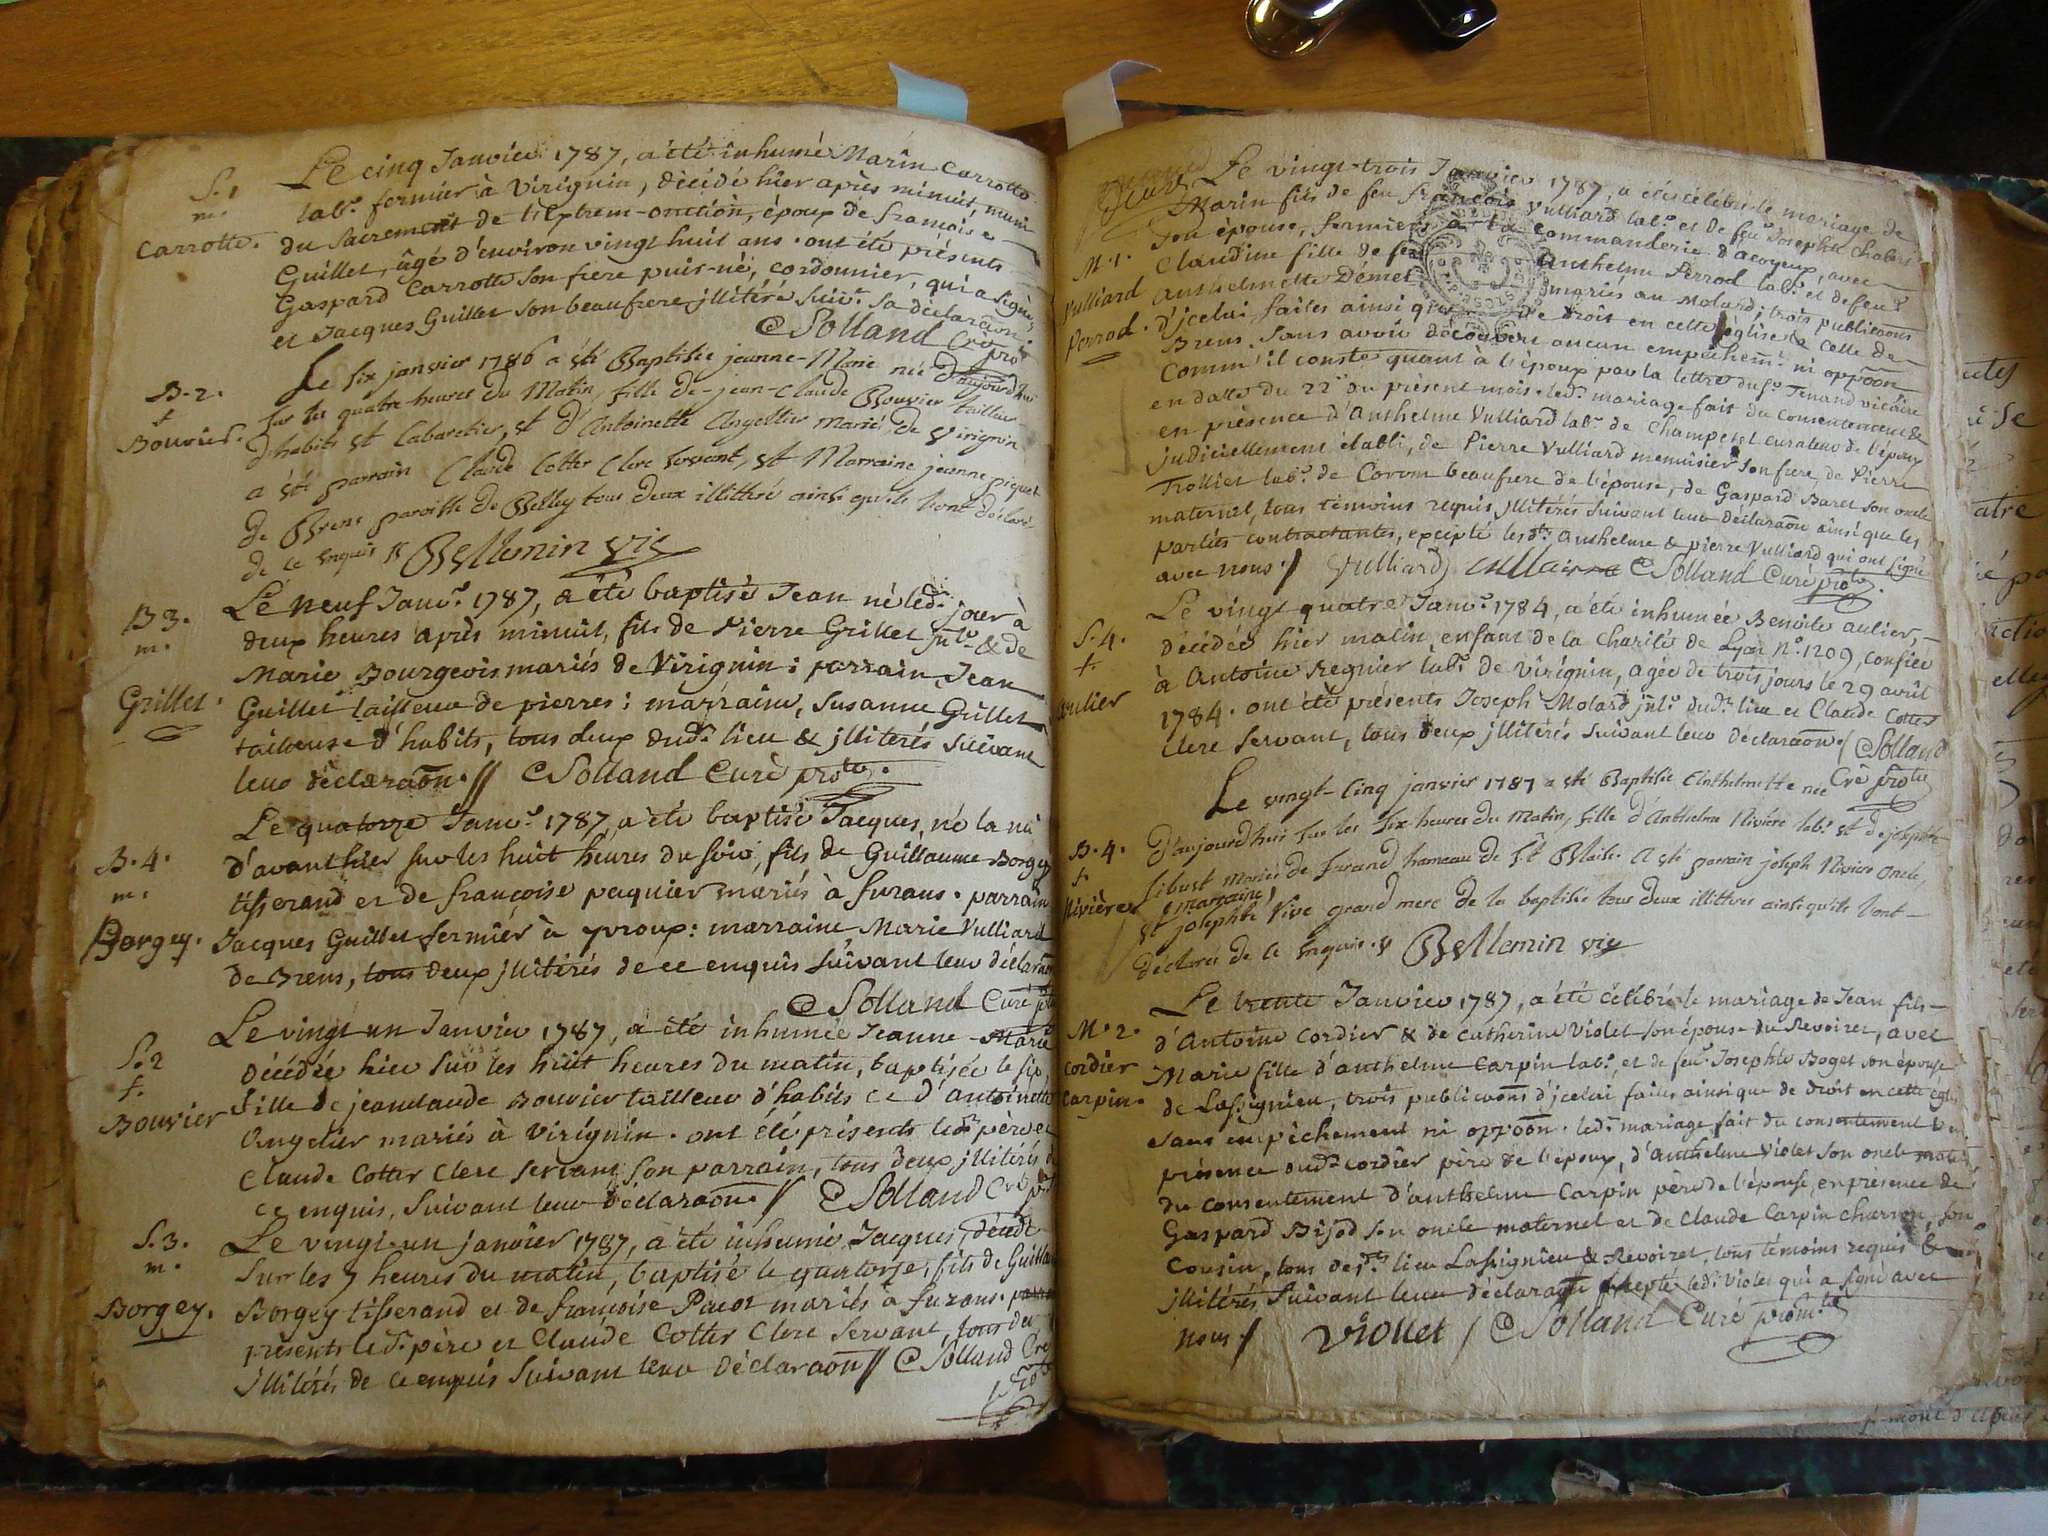 S. 1
m.
Carrotte.
Le cinq Janvier 1787, a été inhumé Marin Carrotte
labr. fermier à Virignin, décédé hier après minuit, muni
du Sacrement de l'Extrem-onction, époux de françoise
Guillet, âgé d'environ vingt huit ans. ont été présents
Gaspard Carrotte son frere puis-né, cordonnier, qui a signé,
et Jacques Guillet son beaufrere illitéré suivt. sa déclaraon.
Solland Cré
B. 2.
f
Bouvier.
Le six janvier 1786 a été Baptisée jeanne-Marie née d'aujourd'hui
sur les quatre heures du Matin, fille de jean-Claude Bouvier tailleur
d'habits et Cabaretier, et d'Antoinette Angellier mariés de Virignin
a été parrain Claude Cotter Clerc servant, et Marraine jeanne piquet
de Brens paroisse de Belley tous deux illittéré ainsi qu'ils l'ont déclaré
de ce enquis // Bellemin vic
B 3.
m.
Grillet.
Le neuf Janvr. 1787, a été baptisé Jean né led. jour à
deux heures après minuit, fils de Pierre Grillet jnlr. & de
Marie Bourgeois mariés de Virignin : parrain, Jean
Guillet tailleur de pierres ; marraine, Susanne Grillet
tailleuse d'habits, tous deux dud. lieu & illiterés suivant
leur déclaraon. // Solland Curé
B. 4.
m.
Borgey.
Le quatorze Janvr. 1787, a été baptisé Jacques, né la nui
d'avanthier sur les huit heures du soir, fils de Guillaume Borgey
tisserand et de françoise paquier mariés à furans. parrain
Jacques Guillet fermier à yvroux : marraine Marie Vulliard
de Brens, tous deux illitérés de ce enquis suivant leur déclaraon
Solland Curé
S. 2
f.
Bouvier
Le vingt un Janvier 1787, a été inhumée Jeanne-Marie
décédée hier sur les huit heures du matin, baptisée le six,
fille de jeanclaude Bouvier tailleur d'habits et d'antoinette
Angelier mariés à Virignin. ont été présents led. père et
Claude Cotter Clerc servant son parrain, tous deux illitérés de
ce enquis, suivant leur déclaraon. // Solland Cré
S. 3.
m.
Borgey.
Le vingt-un janvier 1787, a été inhumé Jacques, décédé
sur les 7 heures du matin, baptisé le quatorze, fils de Guilla
Borgey tisserand et de françoise Pacot mariés à furans.
présents led. père et Claude Cotter Clerc servant, tous deu
illitérés de ce enquis suivant leur déclaraon // Solland Cré
M. 1.
Vulliard
Perrod.
Le vingt-trois Janvier 1787, a été célébré le mariage de
Marin fils de feu françois Vulliard labr. et de feue Josephte Chabert
son épouse, fermiers à la Commanderie d'acoyeux, avec
Claudine fille de feu Anthelme Perrod labr. et de feue
Anthelmette Démet mariés au Molard ; trois publicaons
d'jcelui faites ainsi que de droit en cette église & celle de
Brens, sans avoir découvert aucun empêchemt. ni oppoon
comm'il conste quant à l'époux par la lettre du Sr. Tenand vicaire
en datte du 22e du présent mois. led. mariage fait du consentement &
en présence d'Anthelme Vulliard labr. de Champetel curateur de l'époux
judiciellement établi, de Pierre Vulliard menuisier son frere, de Pierre
Trollier labr. de Corom beaufrere de l'épouse, de Gaspard Baret son oncle
maternel, tous témoins requis illitérés suivant leur déclaraon ainsi que les
parties contractantes, excepté lesds. Anthelme & pierre Vulliard qui ont signé
avec nous. / Vulliard Solland Curé
S. 4.
f.
aulier
Le vingt quatre Janvr. 1784, a été inhumée Benoite aulier,
décédée hier matin, enfant de la Charité de Lyon No. 1209, confiée
à Antoine Regnier labr. de Virignin, agée de trois jours le 29 avril
1784. ont été présents Joseph Molard jnlr. dud. lieu et Claude Cotter
Clerc servant, tous deux illitérés suivant leur déclaraon. / Solland
Cré
B. 4.
f.
Rivière
Le vingt-Cinq janvier 1787 a été Baptisée Anthelmette née
d'aujourd'hui sur les six heures du Matin, fille d'Anthelme Rivière labr. et de josephte
Sibuet mariés de furand hameau de St Blaise. A été parrain joseph Rivière oncle,
et marraine josephte Vive grand mere de la baptisée tous deux illittéres ainsi qu'ils l'ont
déclaré de ce enquis. // Bellemin vic
M. 2.
Cordier
Carpin.
Le trente Janvier 1787, a été célébré le mariage de Jean fils
d'Antoine Cordier & de Catherine Violet son épouse du Revoiret, avec
Marie fille d'anthelme Carpin labr. et de feue Josephte Boget son épouse
de Lassignieu, trois publicaons d'jcelui faites ainsi que de droit en cette églis
sans empêchement ni oppoon. led. mariage fait du consentement & en
présence dud. Cordier père de l'époux, d'Anthelme Violet son oncle mater
du consentement d'anthelme Carpin père de l'épouse, en présence de
Gaspard Bijod son oncle maternel et de Claude Carpin charron, son
Cousin, tous desds. lieu Lassignieu & Revoiret, tous témoins requis &
illitérés suivant leur déclaraon excepté led. Violet qui a signé avec
nous. // Viollet / Solland Curé